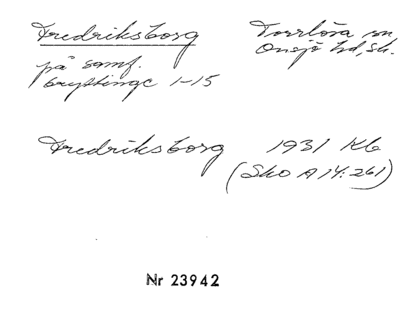 Fredriksborg Torrlösa sn,
Onsjö hd, Sk.
på samf.
bryttinge 1-15
Fredriksborg 1931 Kb
(SkO A 14: 261)
Nr 23942